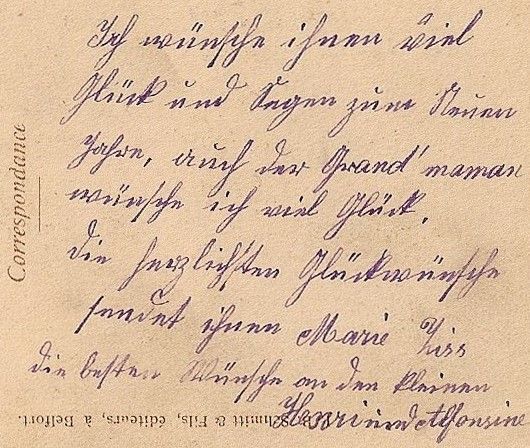 Ich wünsche ihnen viel
Glück und Segen zum Neuen
Jahre, auch der Grand'maman
wünsche ich viel Glück.
die herzlichsten Glückwünsche
sendet ihnen Marie Ziss
die besten Wünsche an den kleinen
Henri und Alfonsine
Correspondance
Schmitt & Fils, éditeurs, à Belfort.